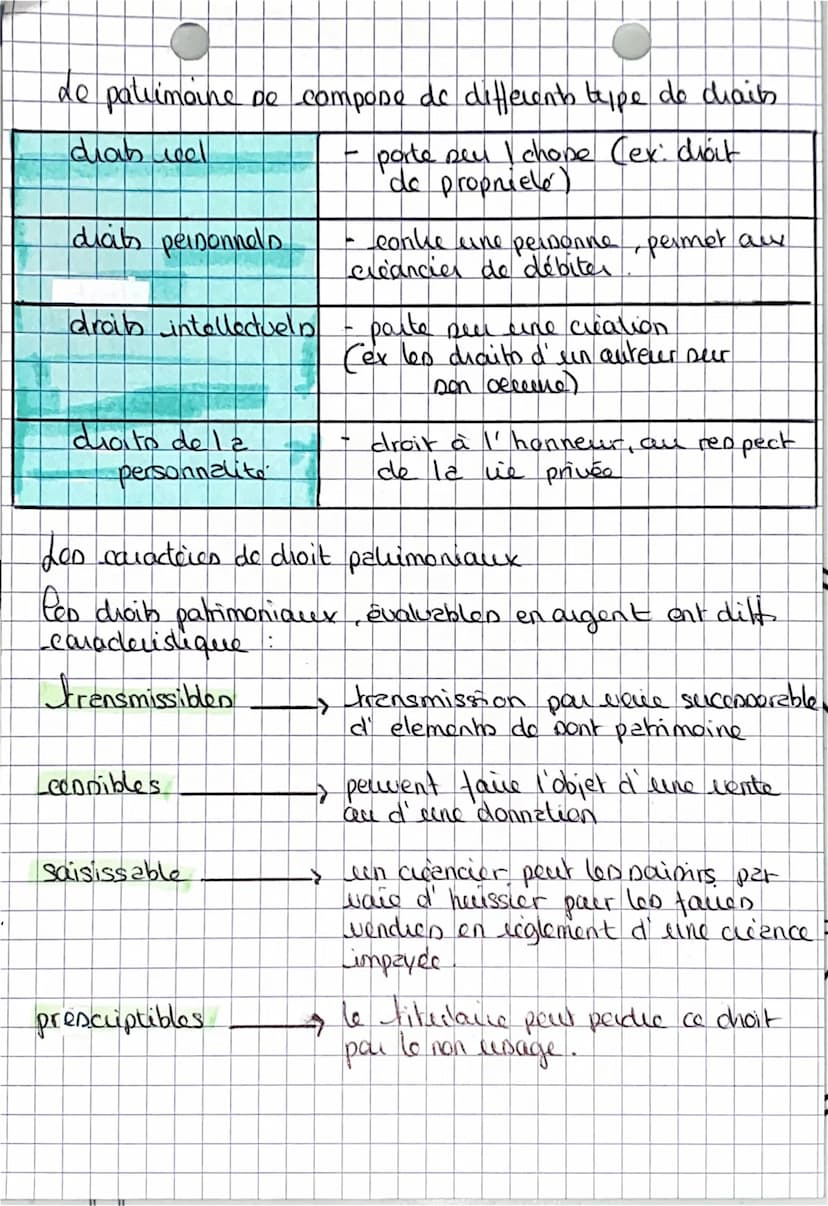 Le patrimoine se compose de differents type de droits
droits reel
- porte sur 1 chose (ex: droit
de propriété)
droits personnels
- contre une personne, permet aux
créancier de débiter.
droits intellectuels
- porte sur une création
(ex les droits d'un auteur sur
son oeuvre)
droits de la
personnalité
- droit à l'honneur, au respect
de la vie privée
Les caractères de droit patrimoniaux
Les droits patrimoniaux, évaluables en argent ont diff
caracteristique :
transmissibles → transmission par voie
d'elements de sont patrimoine
cessibles → peuvent faire l'objet d'une vente
ou d'une donnation
saisissable → un créancier peut les saisirs par
voie d'huissier pour les faires
vendres en règlement d'une créance
impayée.
prescriptibles → le titulaire peut perdre ce droit
par le non usage.